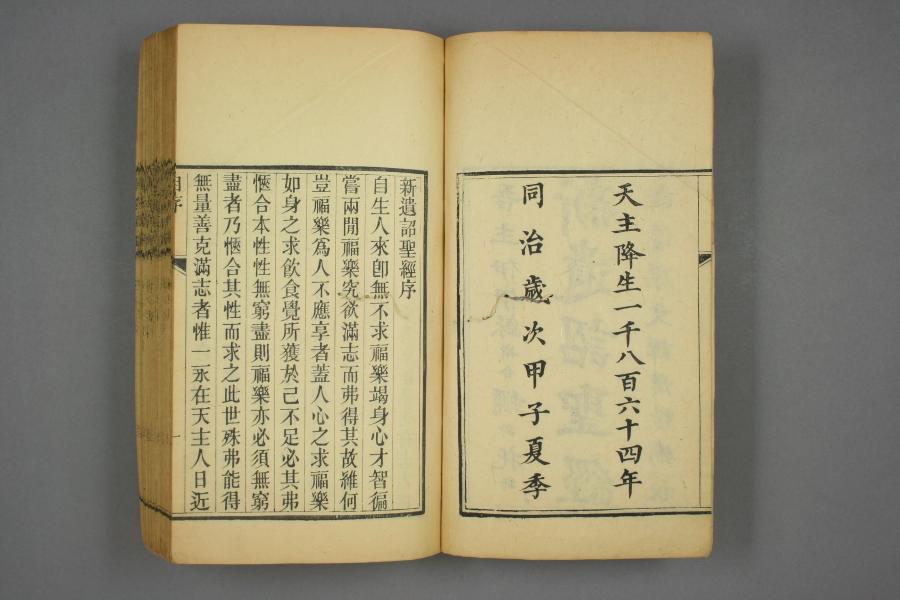 天主降生一千八百六十四年
同治歲次甲子夏季
新遺詔聖經序
自生人來卽無不求福樂竭身心才智徧
嘗兩閒福樂究欲滿志而弗得其故維何
豈福樂爲人不應享者蓋人心之求福樂
如身之求飲食覺所獲於己不足必其弗
愜合本性性無窮盡則福樂亦必須無窮
盡者乃愜合其性而求之此世殊弗能得
無量善克滿志者惟一永在天主人日近
自序